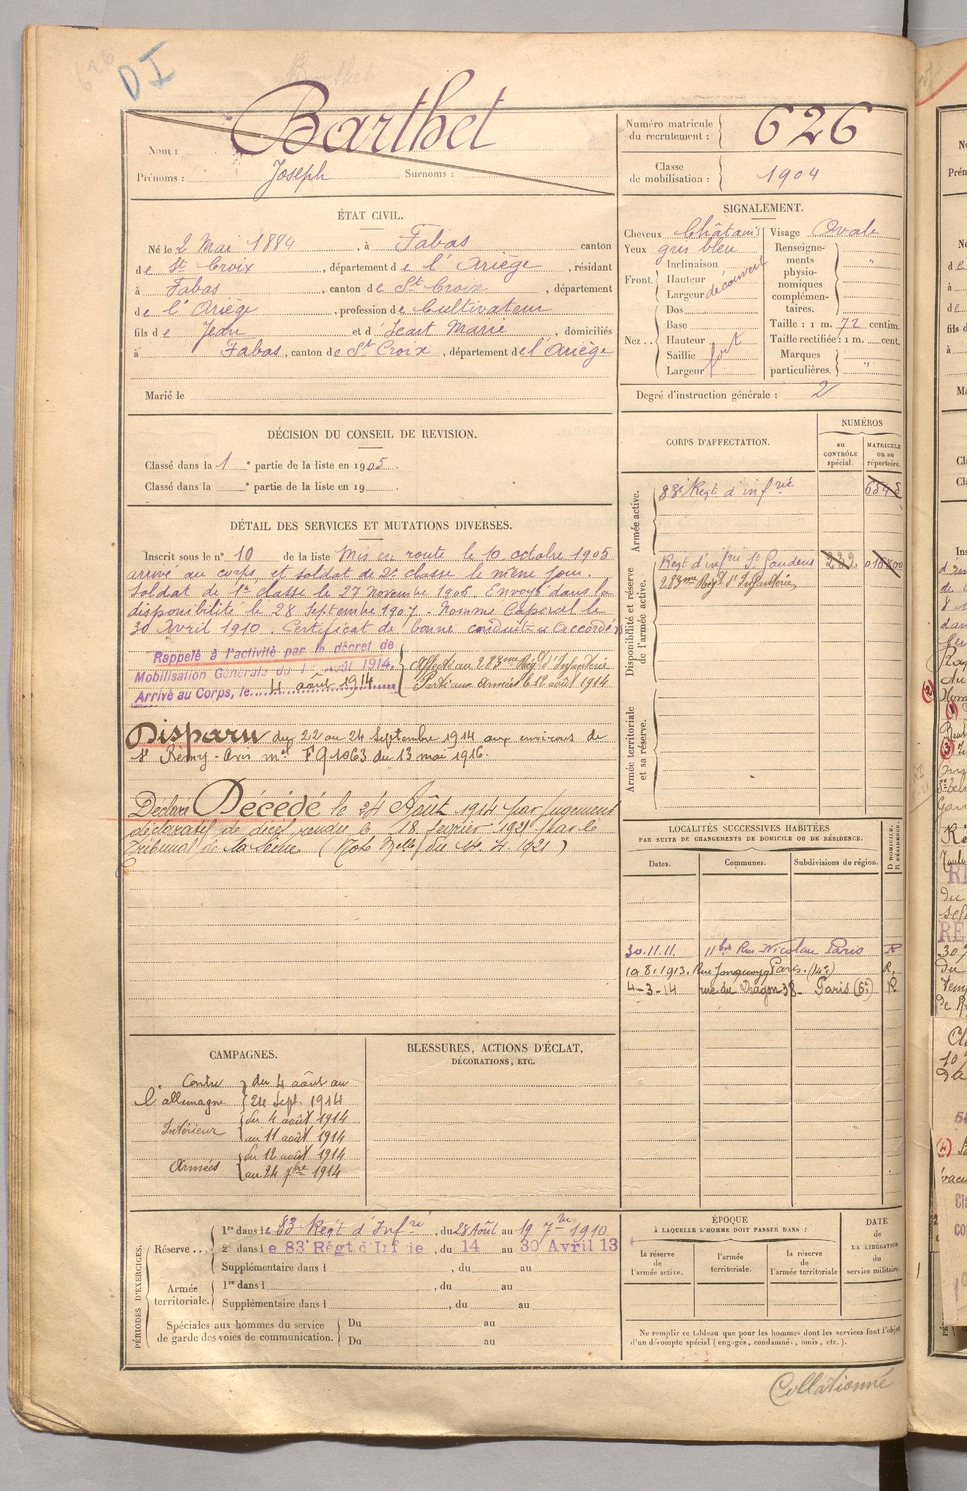 626
DI
Nom : Barthet
Prénoms : Joseph Surnoms :
Numéro matricule du recrutement : 626
Classe de mobilisation : 1904
ÉTAT CIVIL.
Né le 2 Mai 1884, à Fabas canton
de Ste Croix, département de l'Ariège, résidant
à Fabas, canton de Ste Croix, département
de l'Ariège, profession de Cultivateur
fils de Jean et d'Icart Marie, domiciliés
à Fabas, canton de Ste Croix, département de l'Ariège
Marié le
SIGNALEMENT.
Cheveux Châtains Visage Ovale
Yeux gris bleu
Front. Inclinaison Hauteur Largeur découvert
Nez.. Dos Base Hauteur Saillie Largeur fort
Renseignements physionomiques complémentaires. "
Taille : 1 m. 72 centim.
Taille rectifiée : 1 m. cent.
Marques particulières. "
Degré d'instruction générale : 2
DÉCISION DU CONSEIL DE REVISION.
Classé dans la 1e partie de la liste en 1905.
Classé dans la e partie de la liste en 19
CORPS D'AFFECTATION.
NUMÉROS
au CONTRÔLE spécial.
MATRICULE ou au répertoire.
Armée active.
83e Regt d'infrie
Disponibilité et réserve de l'armée active.
Regt d'infrie St Gaudens
283me Regt d'Infanterie
Armée territoriale et sa réserve.
DÉTAIL DES SERVICES ET MUTATIONS DIVERSES.
Inscrit sous le n° 10 de la liste Mis en route le 10 octobre 1905
arrivé au corps et soldat de 2e classe le même jour.
Soldat de 1e classe le 27 Novembre 1906. Envoyé dans la
disponibilité le 28 Septembre 1907. Nommé Caporal le
30 Avril 1910. Certificat de bonne conduite accordé
Rappelé à l'activité par le décret de
Mobilisation Générale du 1er Août 1914.
Arrivé au Corps, le 4 août 1914
Affecté au 283me Regt d'Infanterie
Parti aux Armées le 12 août 1914
Disparu du 22 au 24 Septembre 1914 aux environs de
St Rémy - Avis mel F91063 du 13 mai 1916.
Déclaré Décédé le 24 Août 1914 par Jugement
déclaratif de décès rendu le 18 fevrier 1921 par le
Tribunal de la Seine
LOCALITÉS SUCCESSIVES HABITÉES
PAR SUITE DE CHANGEMENTS DE DOMICILE OU DE RÉSIDENCE.
Dates. Communes. Subdivisions de région. D DOMICILE. R RÉSIDENCE.
30.11.11. 11bis Rue Nicolau Paris R
10.8.1913. Rue Paris. (14e) R,
4-3-14 rue du Dragon 38 - Paris (6e) R
CAMPAGNES.
Contre l'allemagne du 4 août au 24 Sept. 1914
Intérieur du 4 août 1914 au 11 août 1914
Armées du 12 août 1914 au 24 7bre 1914
BLESSURES, ACTIONS D'ÉCLAT,
DÉCORATIONS, ETC.
PÉRIODES D'EXERCICES.
Réserve... 1re dans le 83 Regt d'Infrie, du 28 Août au 19 7bre 1910
2e dans le 83e Régt. d'Infie, du 14 au 30 Avril 13
Supplémentaire dans l, du au
Armée territoriale. 1re dans l, du au
Supplémentaire dans l, du au
Spéciales aux hommes du service de garde des voies de communication. Du au
Du au
ÉPOQUE
À LAQUELLE L'HOMME DOIT PASSER DANS :
la réserve de l'armée active.
l'armée territoriale.
la réserve de l'armée territoriale
DATE DE LA LIBÉRATION du service militaire.
Ne remplir ce tableau que pour les hommes dont les services font l'objet
d'un décompte spécial (engagés, condamnés, omis, etc.).
Collationné